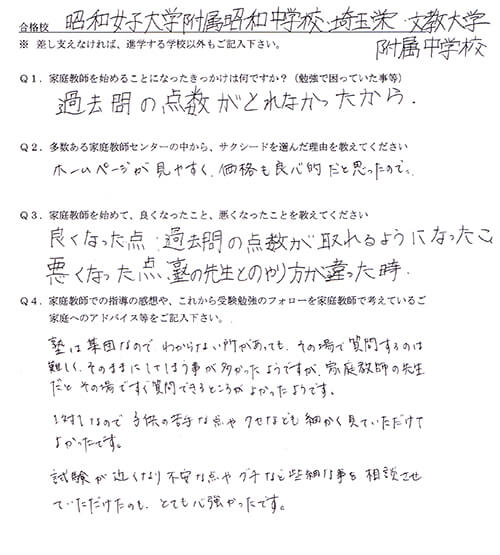 合格校 昭和女子大学附属昭和中学校・埼玉栄・文教大学
附属中学校
※ 差し支えなければ、進学する学校以外もご記入下さい。
Q1．家庭教師を始めることになったきっかけは何ですか？（勉強で困っていた事等）
過去問の点数がとれなかったから．
Q2．多数ある家庭教師センターの中から、サクシードを選んだ理由を教えてください
ホームページが見やすく、価格も良心的だと思ったので。
Q3．家庭教師を始めて、良くなったこと、悪くなったことを教えてください
良くなった点：過去問の点数が取れるようになったこ
悪くなった点、塾の先生とのやり方が違った時．
Q4．家庭教師での指導の感想や、これから受験勉強のフォローを家庭教師で考えているご
家庭へのアドバイス等をご記入下さい。
塾は集団なので わからない所があっても、その場で質問するのは
難しく、そのままにしてしまう事が多かったようですが、家庭教師の先生
だと その場ですぐ質問できるところがよかったようです。
1対1なので 子供の苦手な点や クセなども 細かく見ていただけて
よかったです。
試験が近くなり 不安な点や グチなど些細な事を 相談させ
ていただけたのも、とても心強かったです。